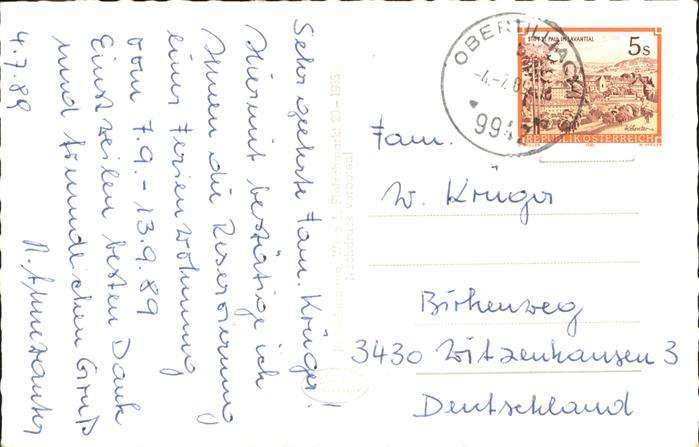 Sehr geehrte Fam. Krüger!
Hiermit bestätige ich
Ihnen die Reservierung
einer Ferienwohnung
vom 7.9.-13.9.89
Einstweilen besten Dank
und freundlichen Gruß
4.7.89
OBERTILLIACH
9942
STIFT ST. PAUL IM LAVANTTAL
5 s
REPUBLIK ÖSTERREICH
Fam.
W. Krüger
Birkenweg
3430 Witzenhausen 3
Deutschland